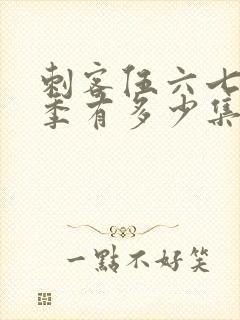 刺客伍六七
季有多少集
一點不好笑